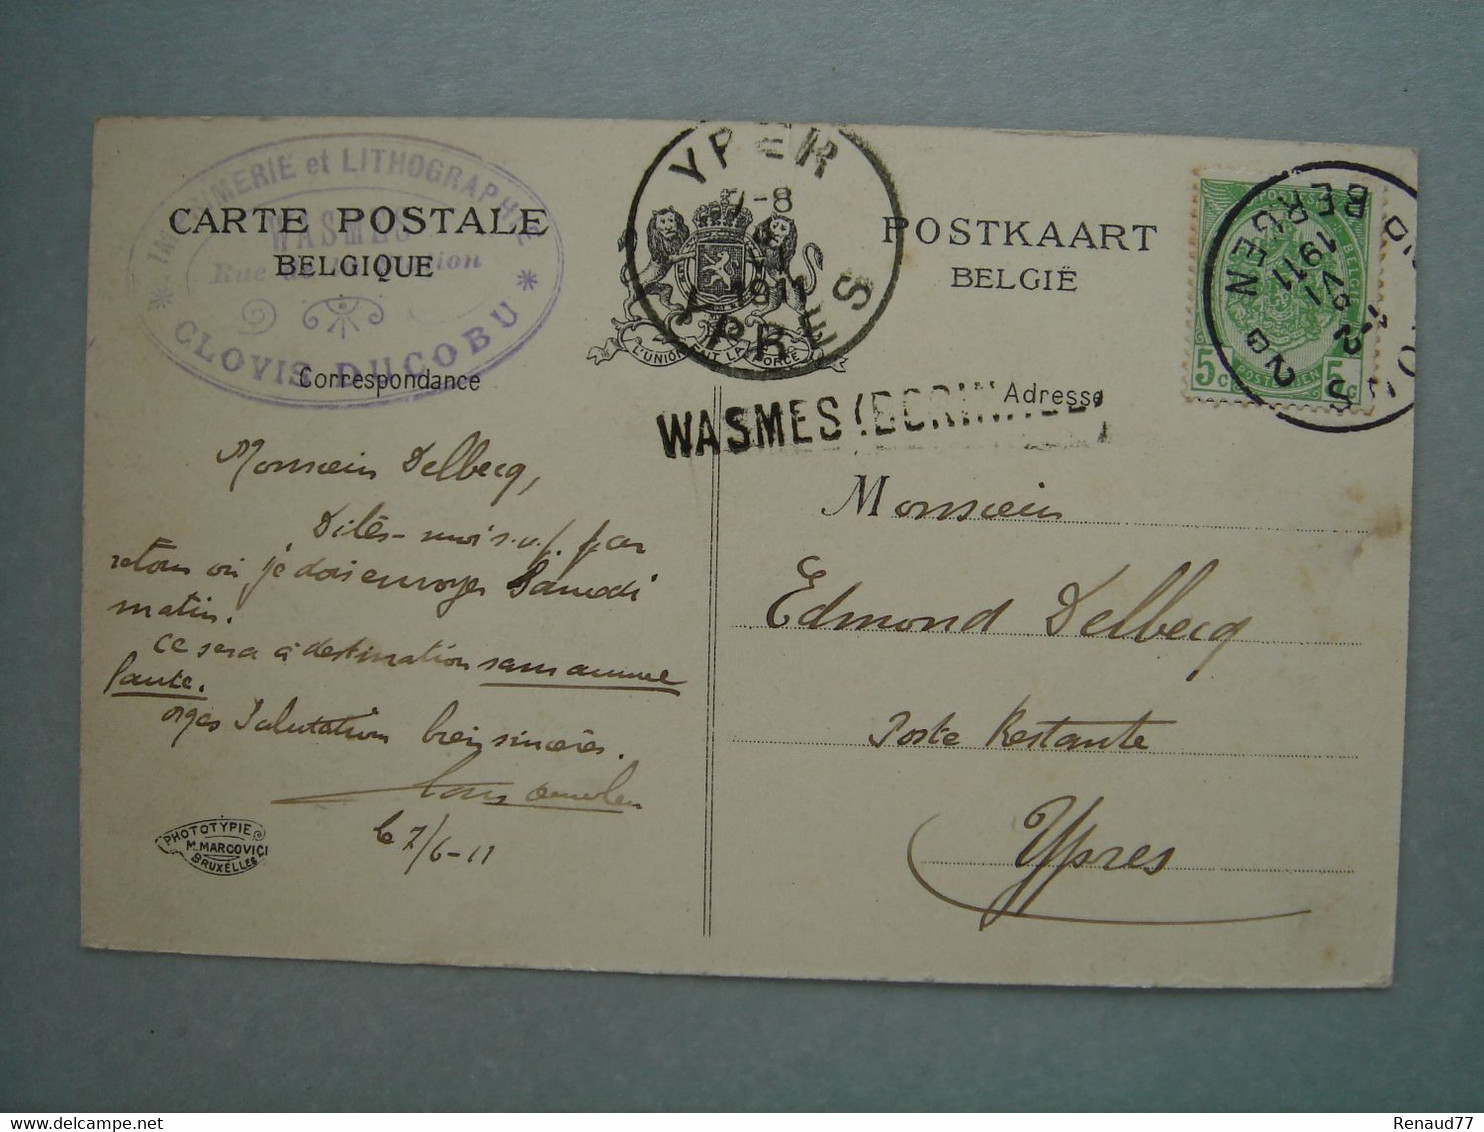 IMPRIMERIE et LITHOGRAPHIE
WASMES
Rue
CLOVIS DUCOBU
CARTE POSTALE
BELGIQUE
Correspondance
YPER
7-8
1911
YPRES
L'UNION FAIT LA FORCE
POSTKAART
BELGIË
Adresse
WASMES (BORINAGE)
BERGEN
1911
2B
5c POSTERIJEN 5c
Monsieur Delbecq,
Dites-moi s.v.p. par
retour où je dois envoyer Samedi
matin.
Ce sera à destination sans aucune
faute.
Salutations bien sincères.
le 7/6-11
PHOTOTYPIE
M. MARCOVICI
BRUXELLES
Monsieur
Edmond Delbecq
Poste Restante
Ypres
Renaud77